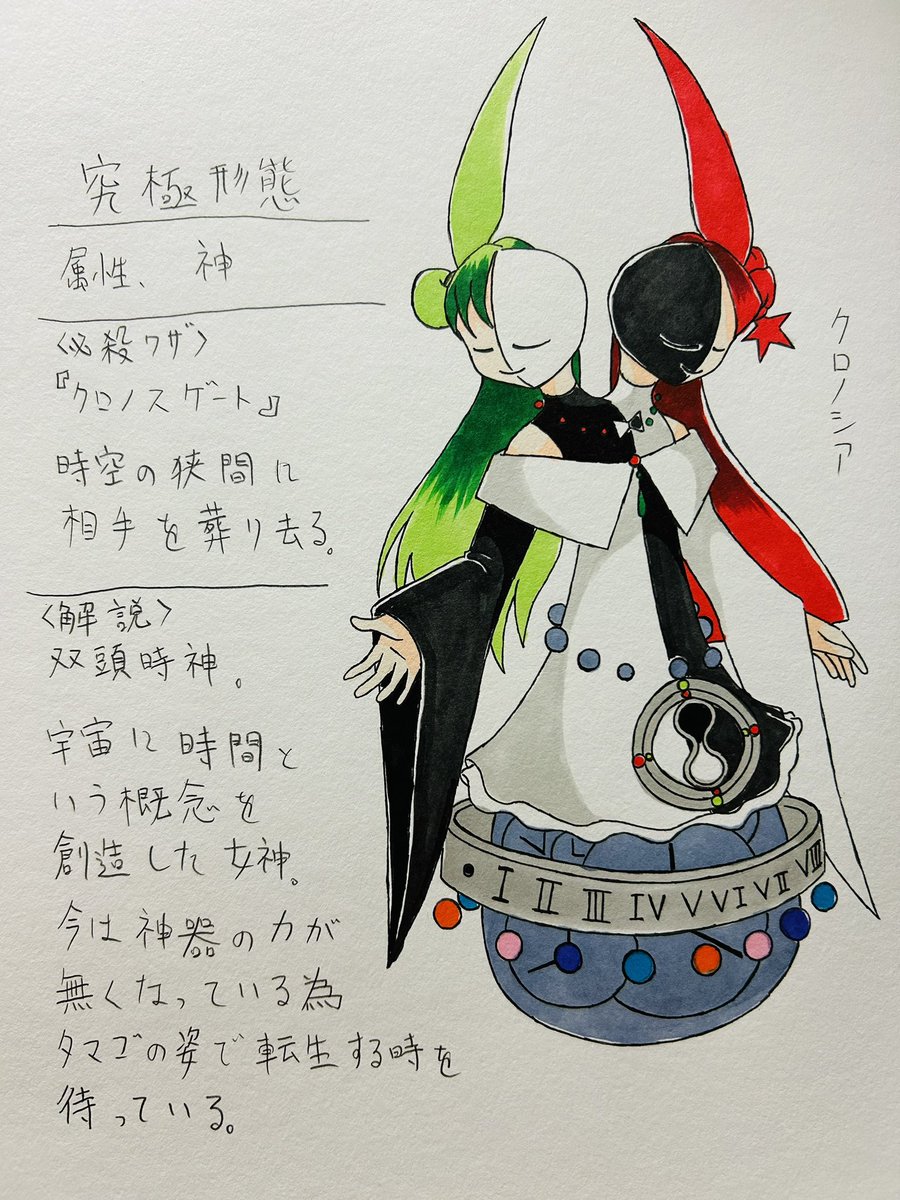 究極形態
属性、神
〈必殺ワザ〉
『クロノスゲート』
時空の狭間に
相手を葬り去る。
〈解説〉
双頭時神。
宇宙に時間と
いう概念を
創造した女神。
今は神器の力が
無くなっている為
タマゴの姿で転生する時を
待っている。
クロノシア
I II III IV V VI VII VIII